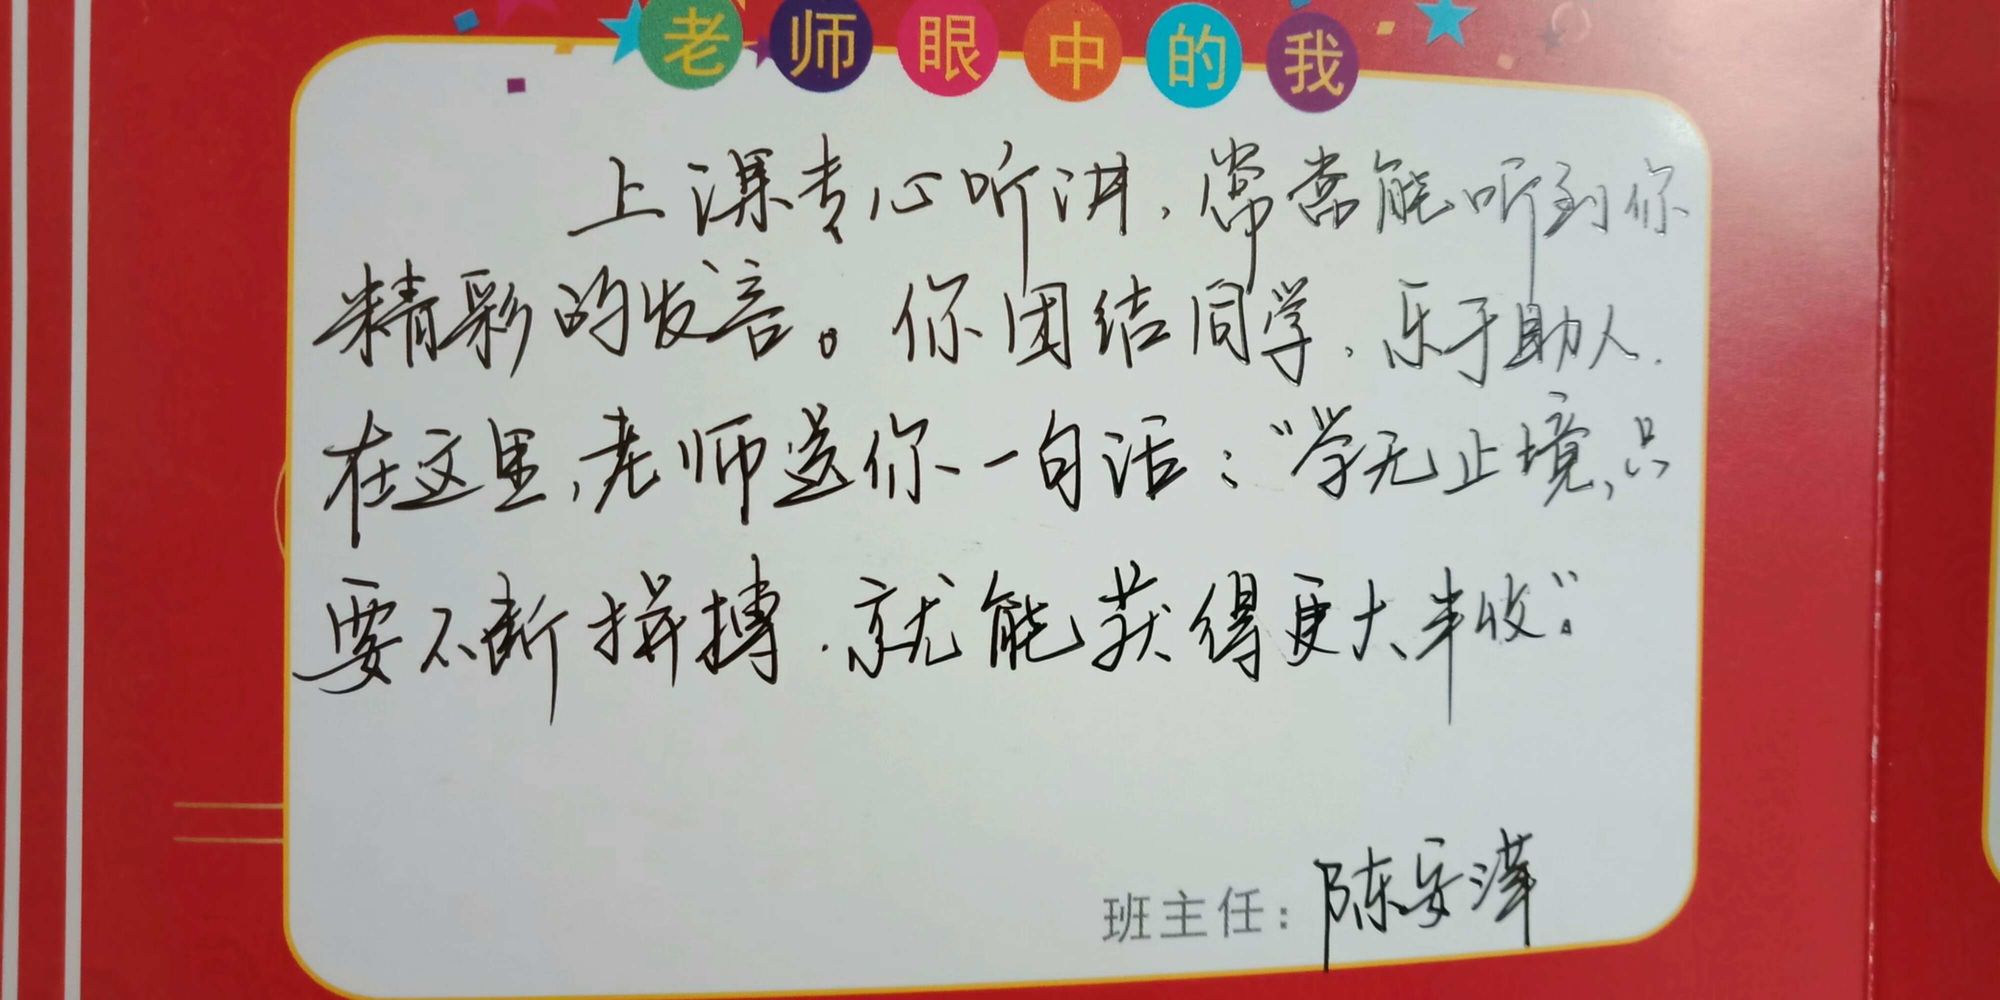 老师眼中的我
上课专心听讲,常常能听到你
精彩的发言。你团结同学,乐于助人.
在这里,老师送你一句话:“学无止境,只
要不断拼搏.就能获得更大丰收”.
班主任:陈安萍